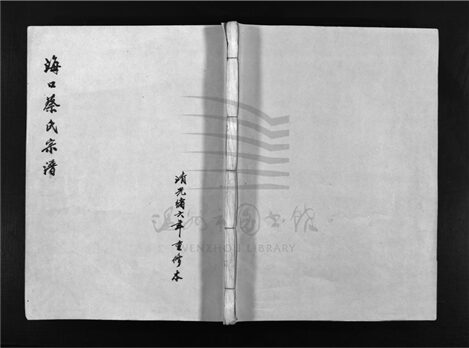 海口蔡氏宗譜
清光緒六年重修本
温州市图书馆
WENZHOU LIBRARY